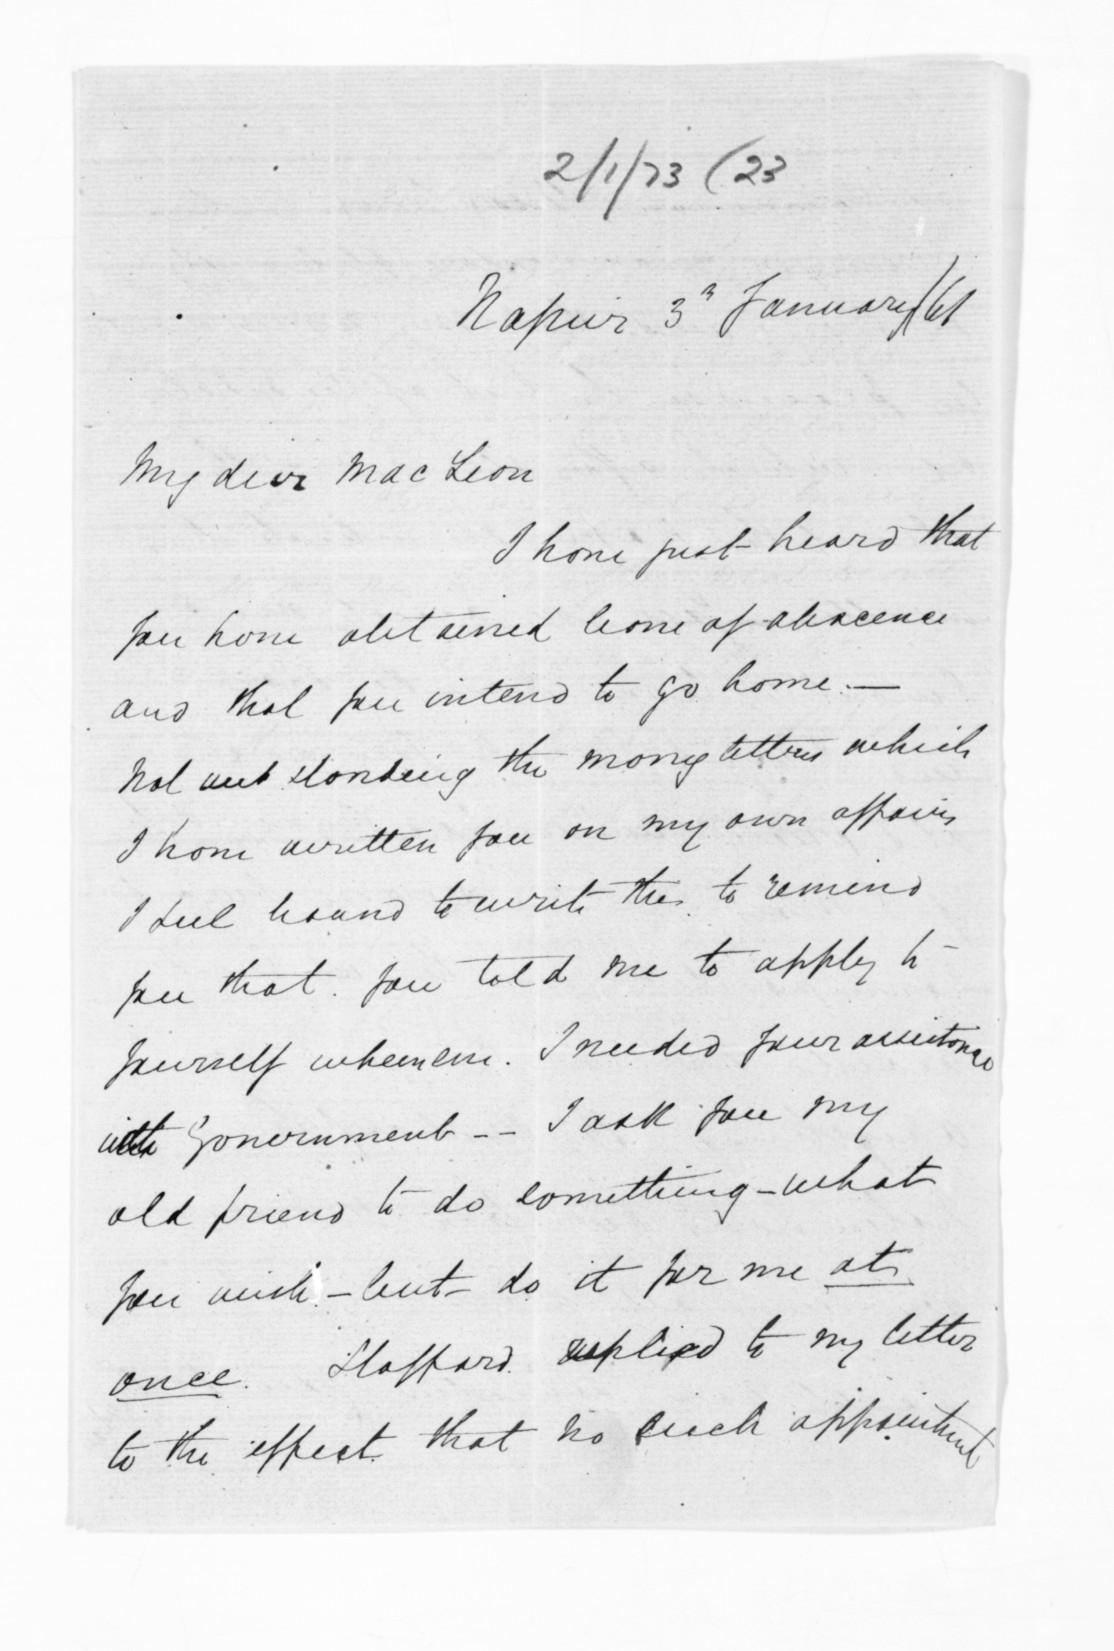 2/1/73 (23
Napier 3d January/61
My dear MacLean
I have just heard that
you have obtained leave of abscence
and that you intend to go home. —
Not with standing the many letters which
I have written you on my own affairs
I feel bound to write this to remind
you that you told me to apply to
yourself whenever I needed your assistance
with Government -- I ask you my
old friend to do something - what
you wish - but - do it for me at
once. Stafford replied to my letter
to the effect that no such appointment